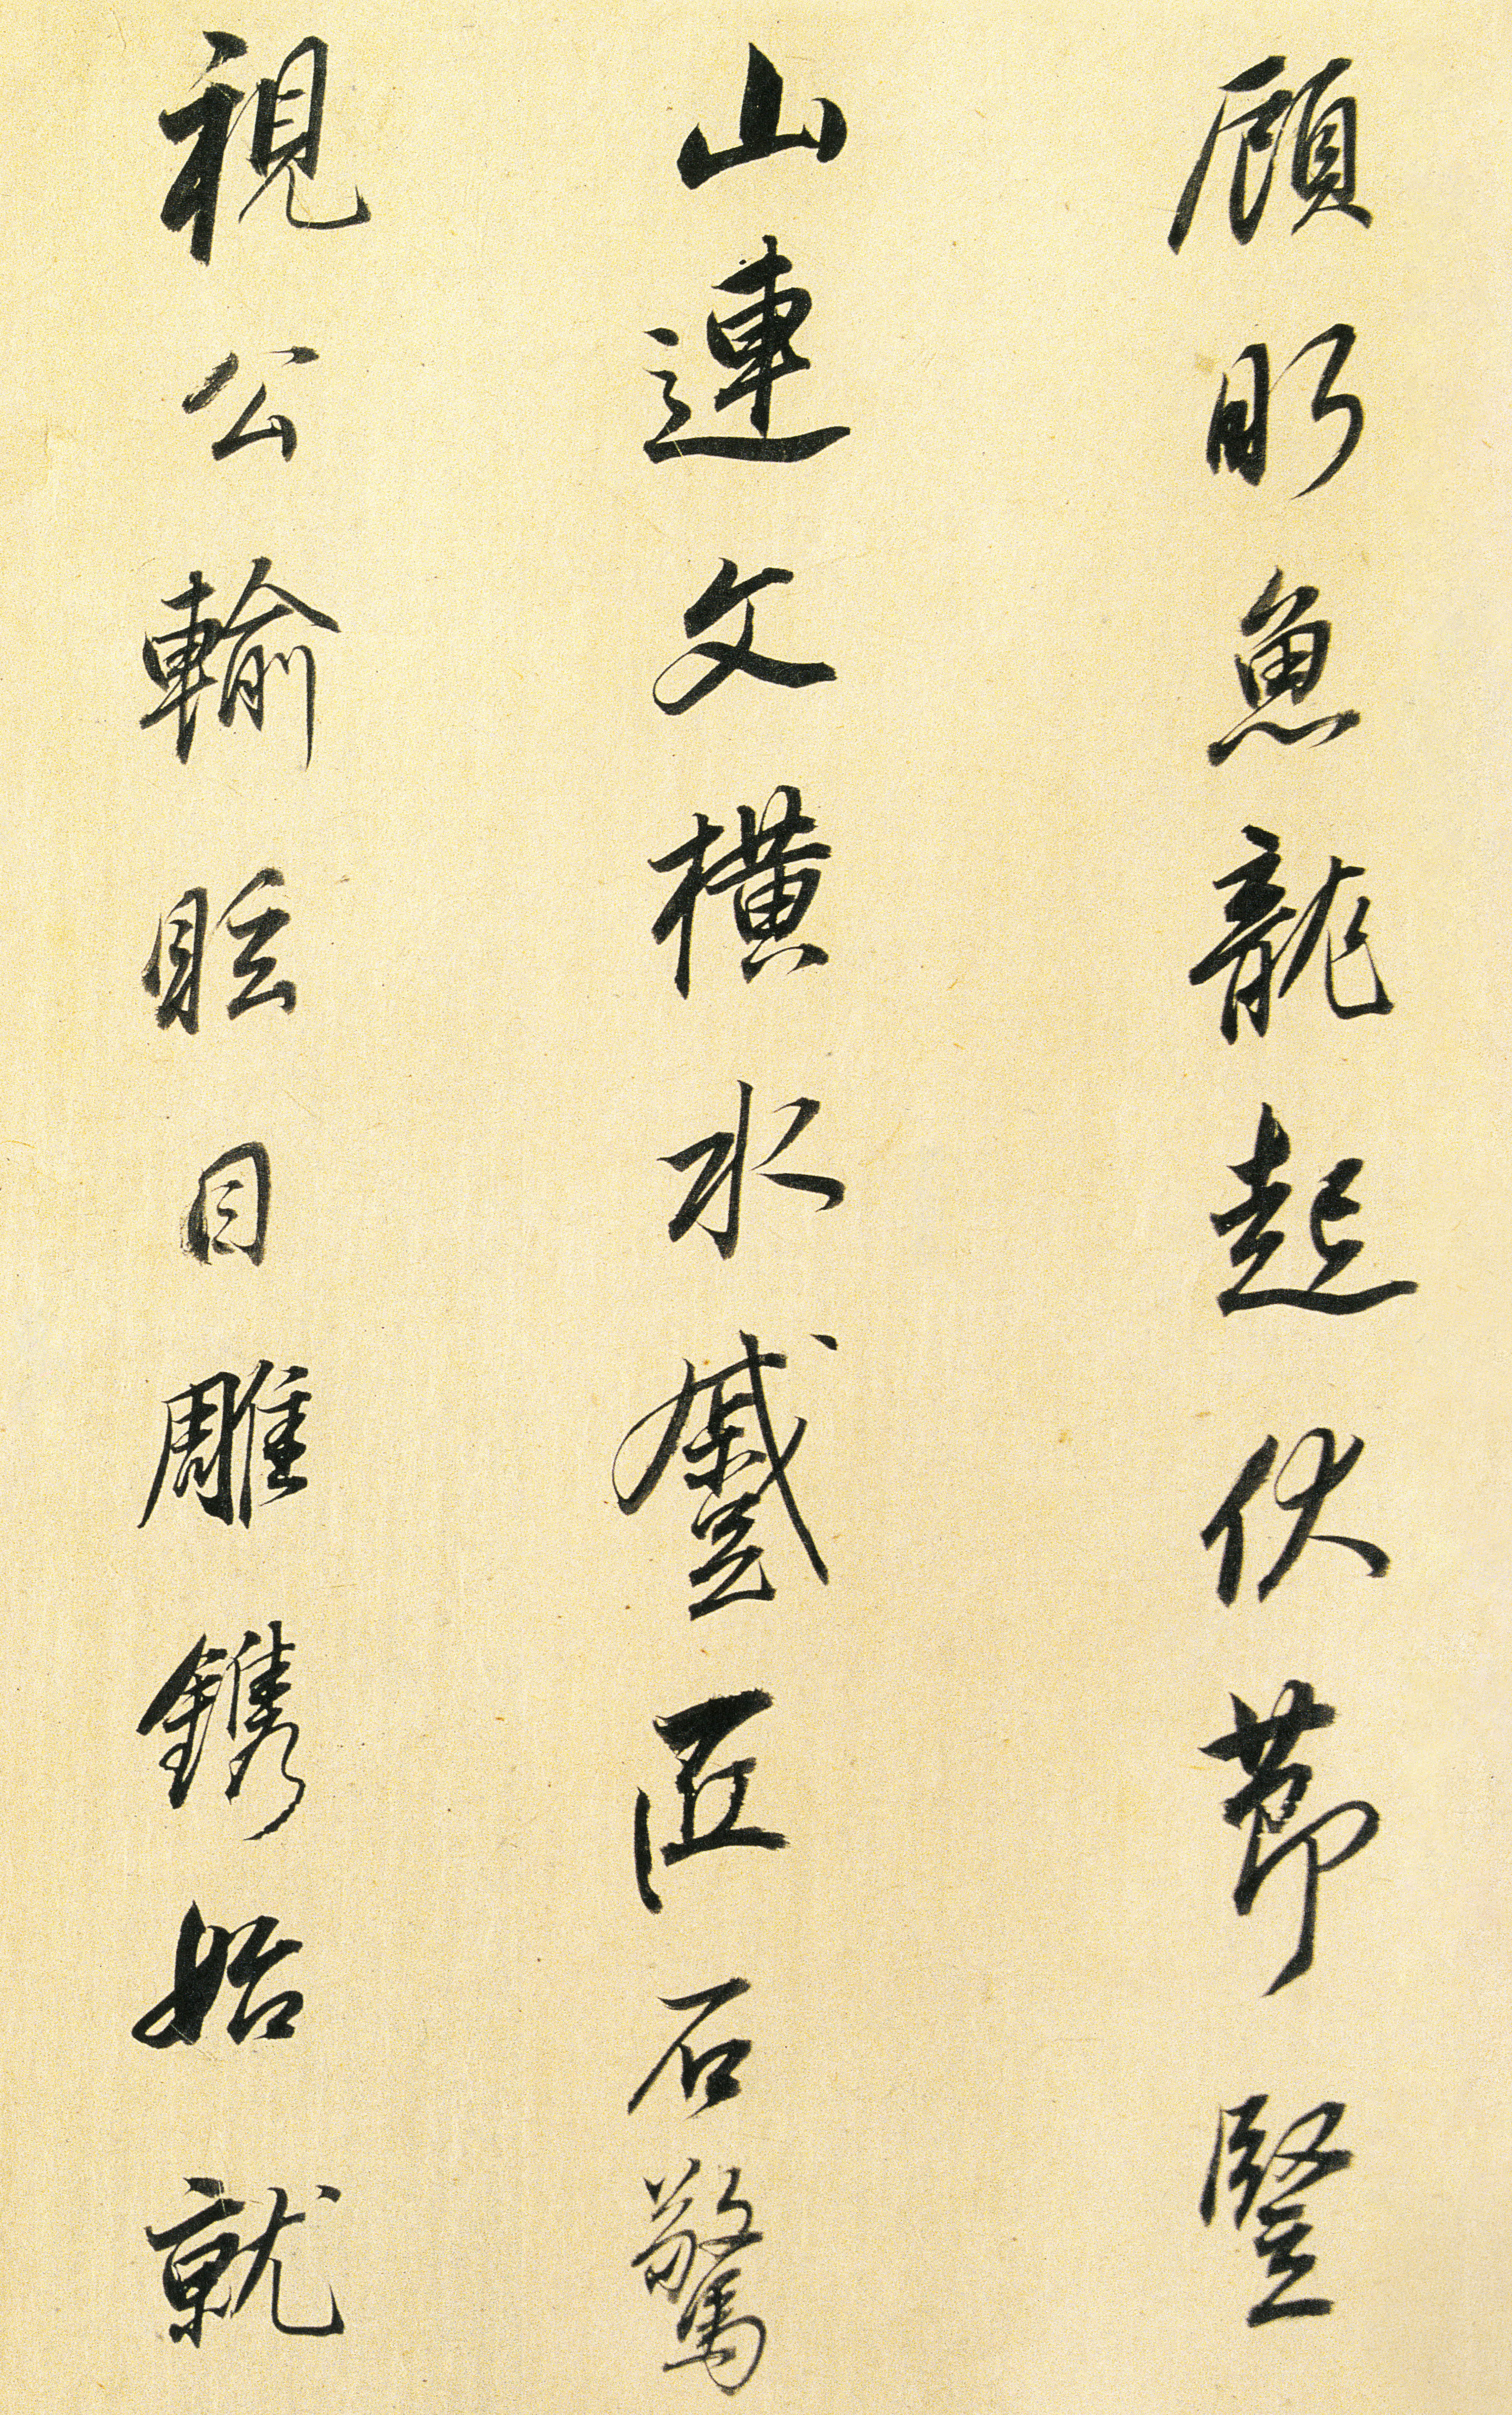 顧眄魚龍起伏節豎
山連文橫水蹙匠石驚
視公輸眩目雕鐫始就